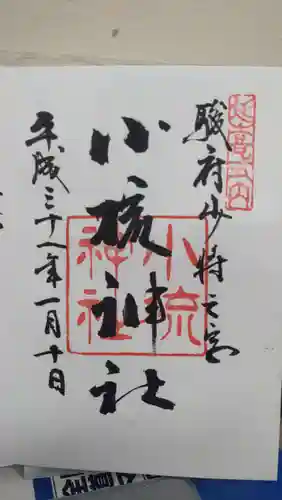 延喜式内
駿府少将之宮
小梳神社
小梳神社
平成三十一年一月十日